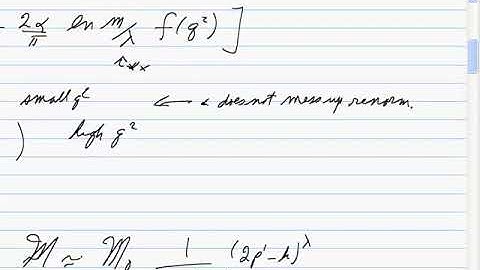 - 2α/π ln m/λ f(q²) ]
small q² ← does not mess up renorm.
) high q²
M ≈ M₀ 1 (2p'-k)^λ